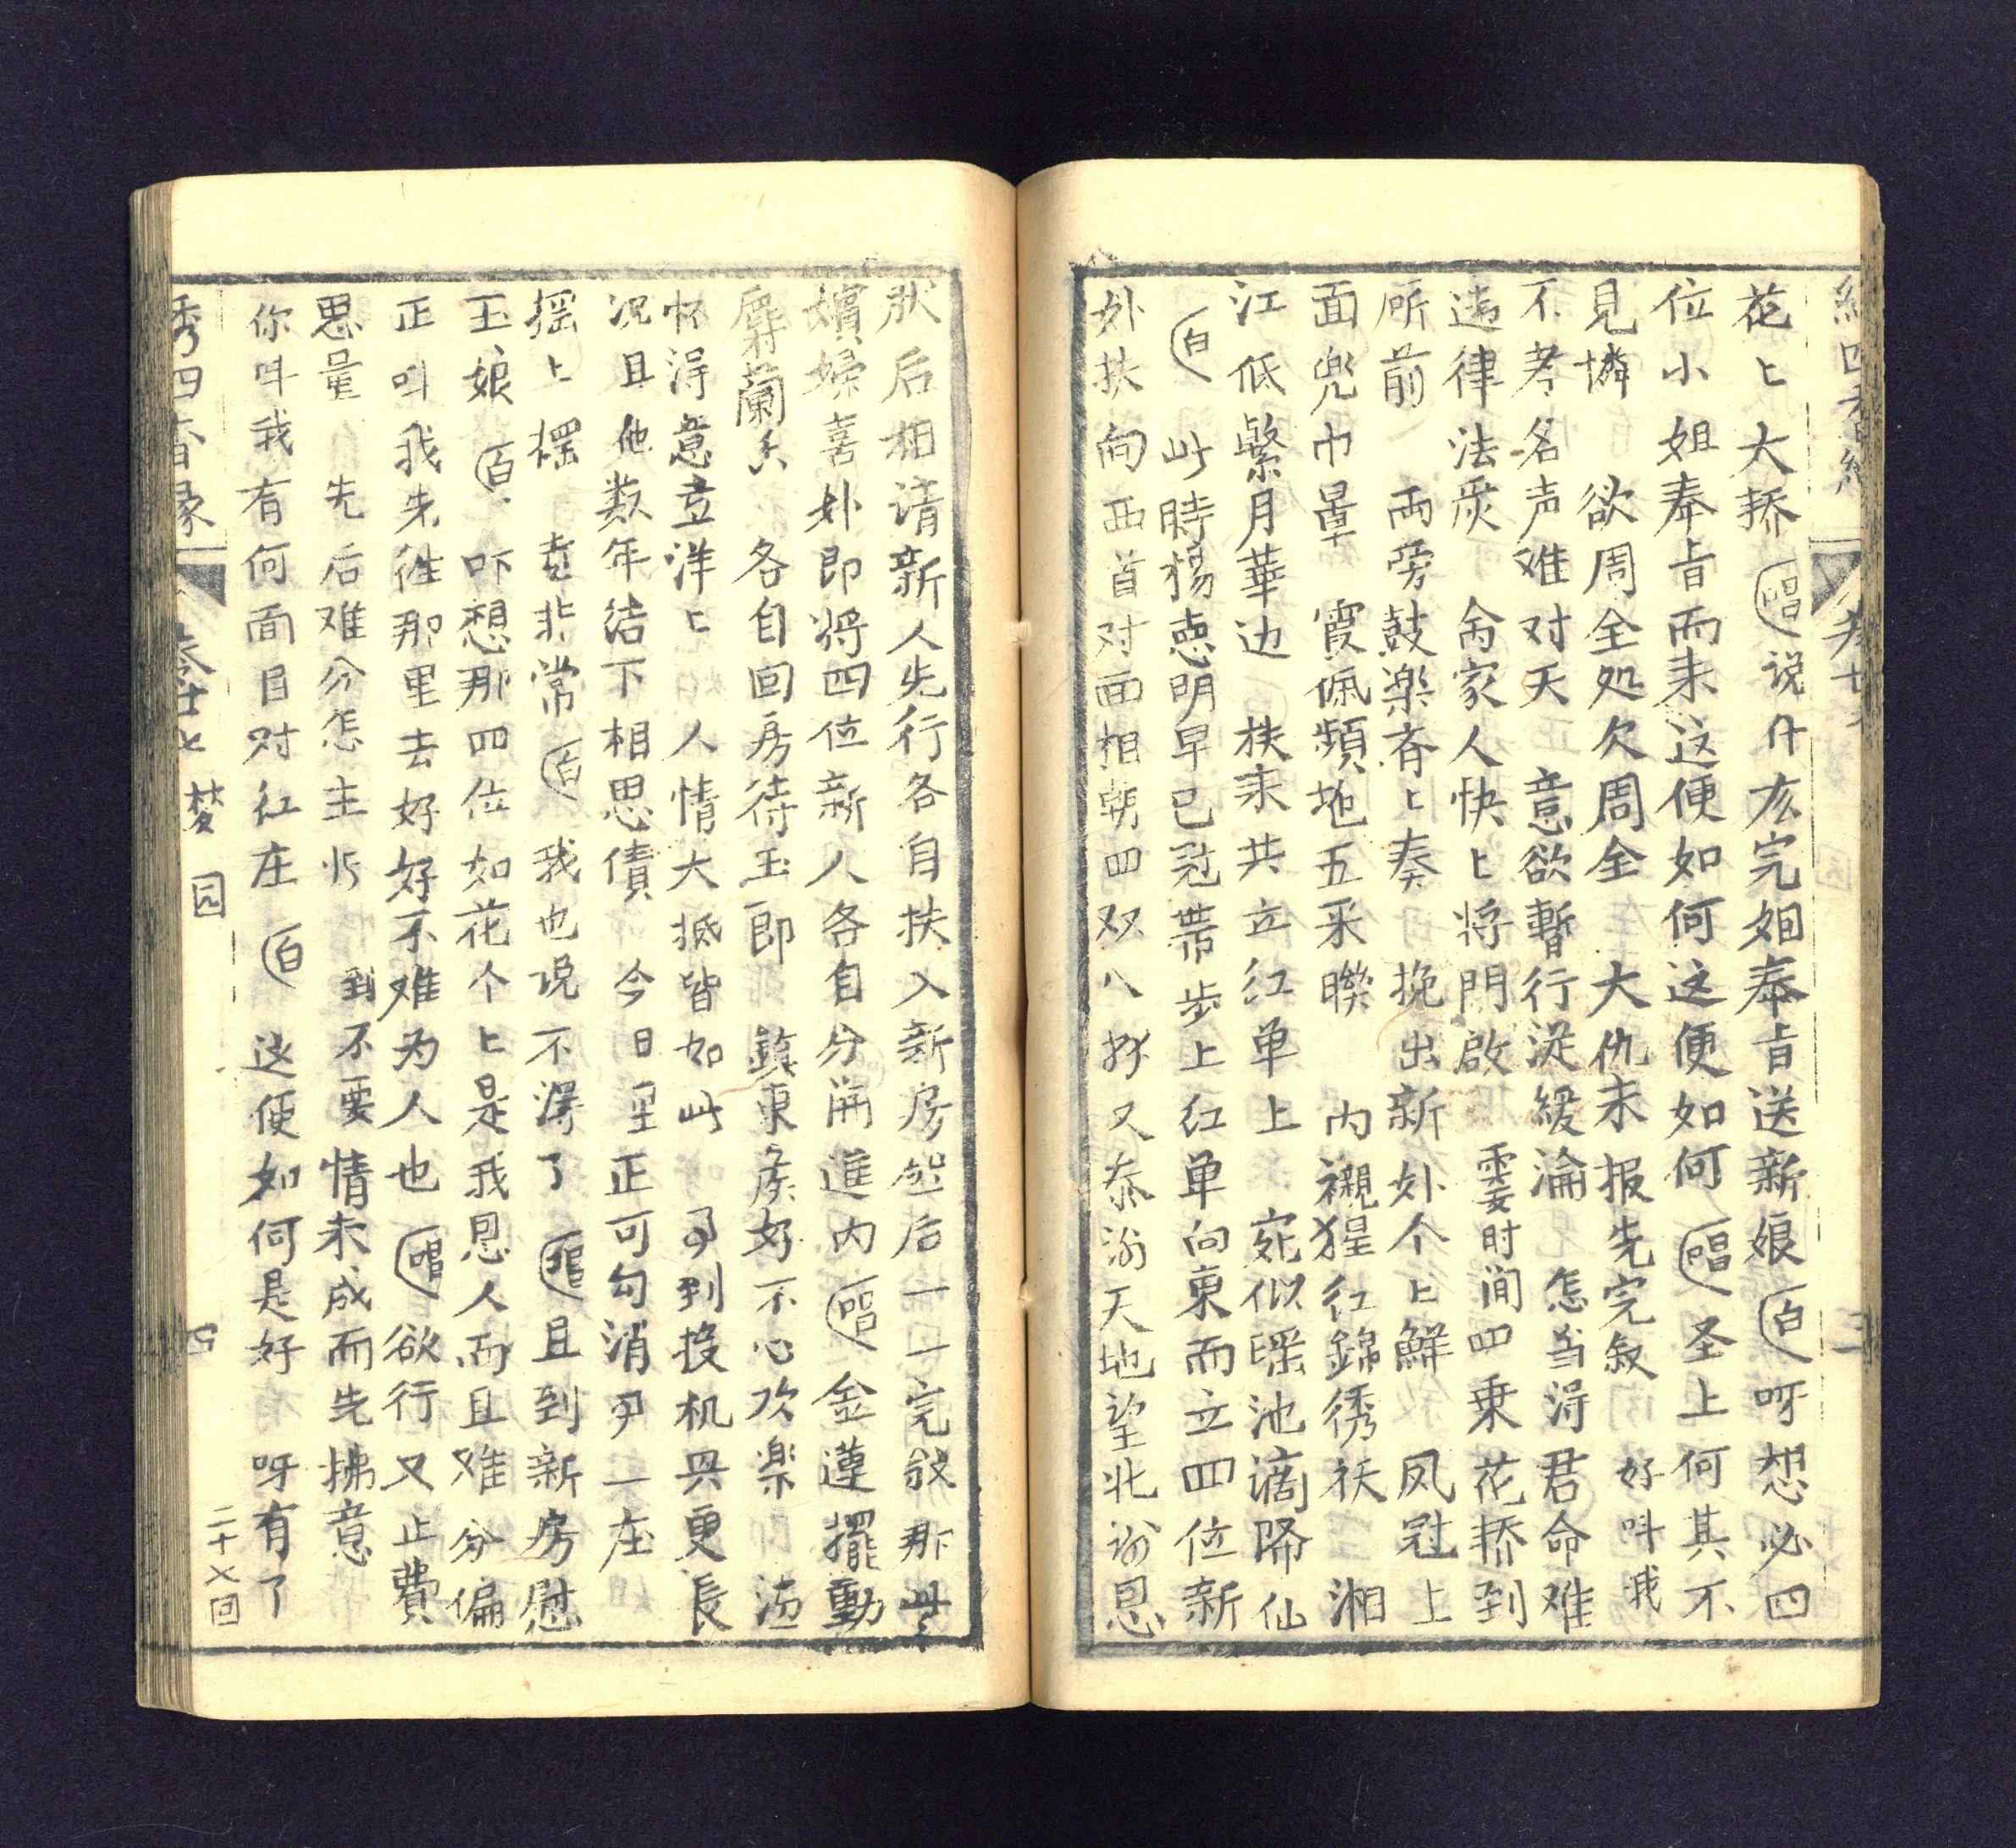 花上大轎 唱 说什広完姻奉旨送新娘 白 呀想必四
位小姐奉旨而来这便如何这便如何 唱 圣上何其不
見憐 欲周全処欠周全 大仇未报先完叙 好叫我
不孝名声难对天 意欲暫行従緩淪 怎当淂君命难
违律法炭 侖家人快上将門啟 霎时间四乗花轎到
所前 両旁鼓楽斉上奏 挽出新外个上鮮 凤冠上
面兜巾罩 霞佩頻拖五采 内襯猩红錦绣袄 湘
江低繫月華边 扶来共立红单上 宛似瑶池謫降仙
白 此時楊悳明早已冠帶步上红单向東而立四位新
外扶向西首对面相朝四双八拜又叅谢天地望北谢恩
状后相请新人先行各自扶入新房然后一一完叙那些
嬪婦喜外即将四位新人各自分開進内 唱 金蓮擺動
麝蘭 各自回房待玉郎 鎮東侯好不心欢楽
怀淂意立洋上 人情大抵皆如此 到投机更長
况且他数年结下相思債 今日里正可勾消 一庄
摇上摆 非常 白 我也说不淂了 唱 且到新房慰
玉娘 白 吓想那四位如花个上是我恩人而且难分偏
正叫我先徃那里去好好不难为人也 唱 欲行又止費
思量 先后难分怎主 到不要情未成而先拂意
你叫我有何面目对红庄 白 这便如何是好 呀有了
秀四香緣 卷十七 楼 园 四 二十七回